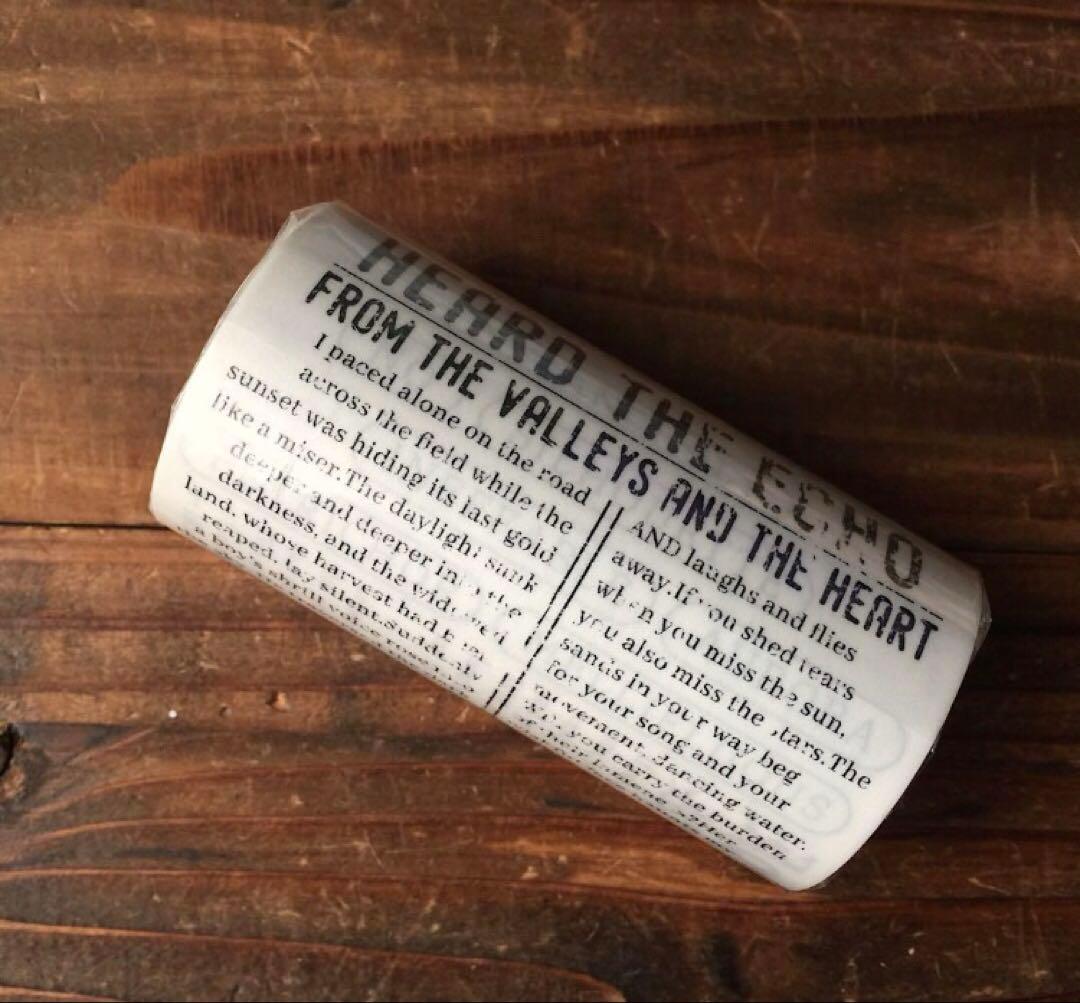 HEARD THE ECHO
FROM THE VALLEYS AND THE HEART
I paced alone on the road
across the field while the
sunset was hiding its last gold
like a miser.The daylight sank
deeper and deeper into the
darkness, and the widowed
land, whose harvest had been
reaped, lay silent.Suddenly
a boy's shrill voice rose into
AND laughs and flies
away.If you shed tears
when you miss the sun,
you also miss the stars.The
sands in your way beg
for your song and your
movement, dancing water.
you carry the burden
of their